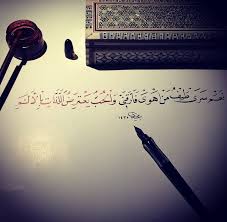 نَعَمْ سَرَى طَيْفُ مَنْ أَهْوَى فَأَرَّقَنِي وَالْحُبُّ يَعْتَرِضُ اللَّذَّاتِ بِالْأَلَمِ